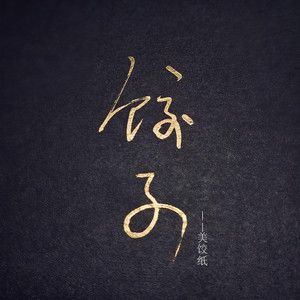 饺子
——美饺纸